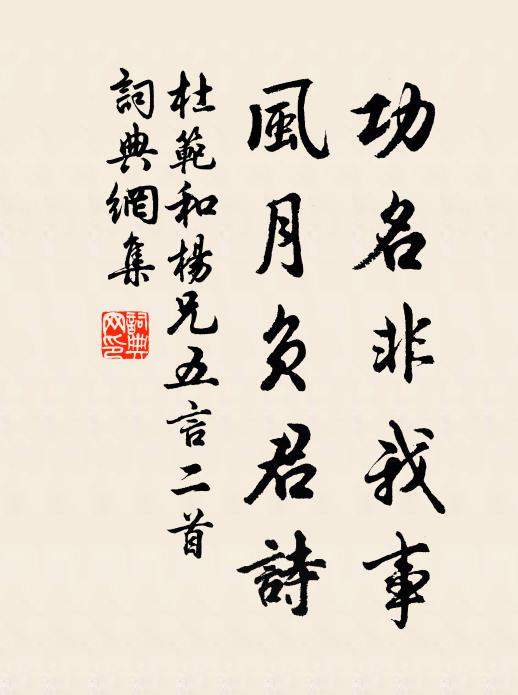 功名非我事
風月負君詩
杜範和楊兄五言二首
詞典網集
詞典網印